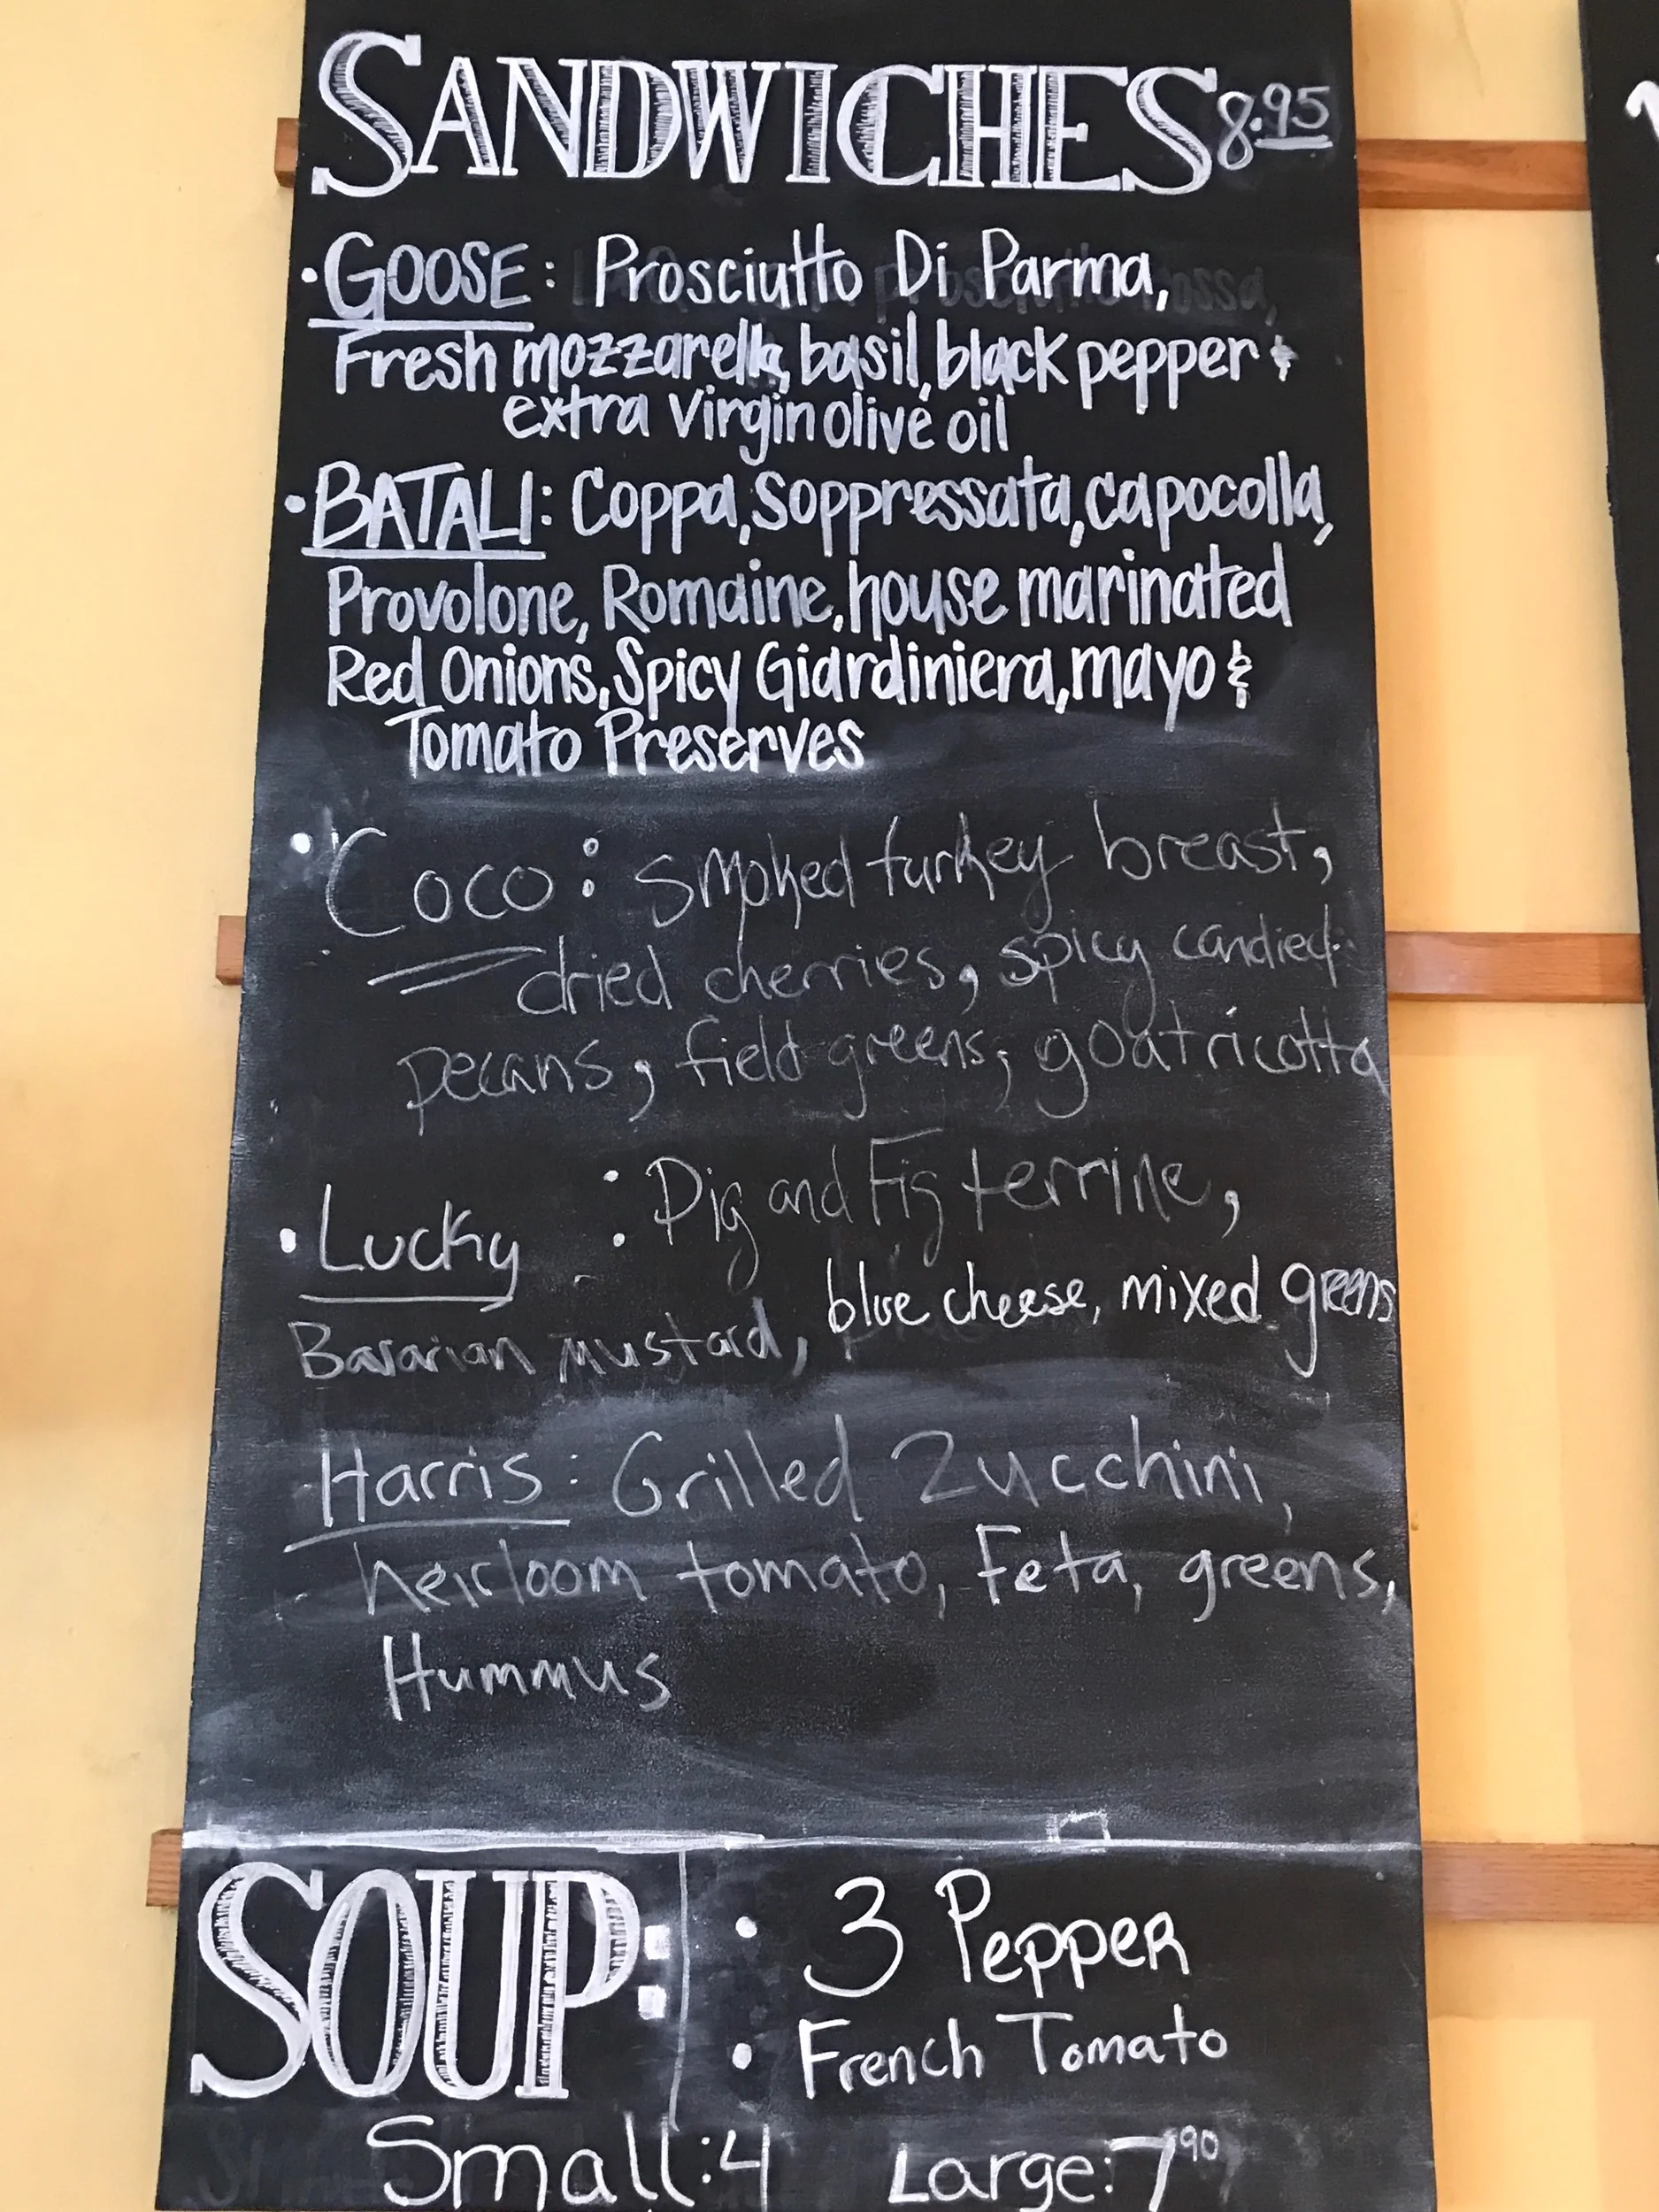 SANDWICHES 8.95
• GOOSE: Prosciutto Di Parma,
Fresh mozzarella, basil, black pepper &
extra virgin olive oil
• BATALI: Coppa, Soppressata, capocolla,
Provolone, Romaine, house marinated
Red Onions, Spicy Giardiniera, mayo &
Tomato Preserves
• Coco: smoked turkey breast,
dried cherries, spicy candied
pecans, field greens, goat ricotta
• Lucky : Pig and Fig terrine,
Bavarian mustard, blue cheese, mixed greens
Harris: Grilled Zucchini,
heirloom tomato, Feta, greens,
Hummus
SOUP:
• 3 Pepper
• French Tomato
Small: 4 Large: 7 90